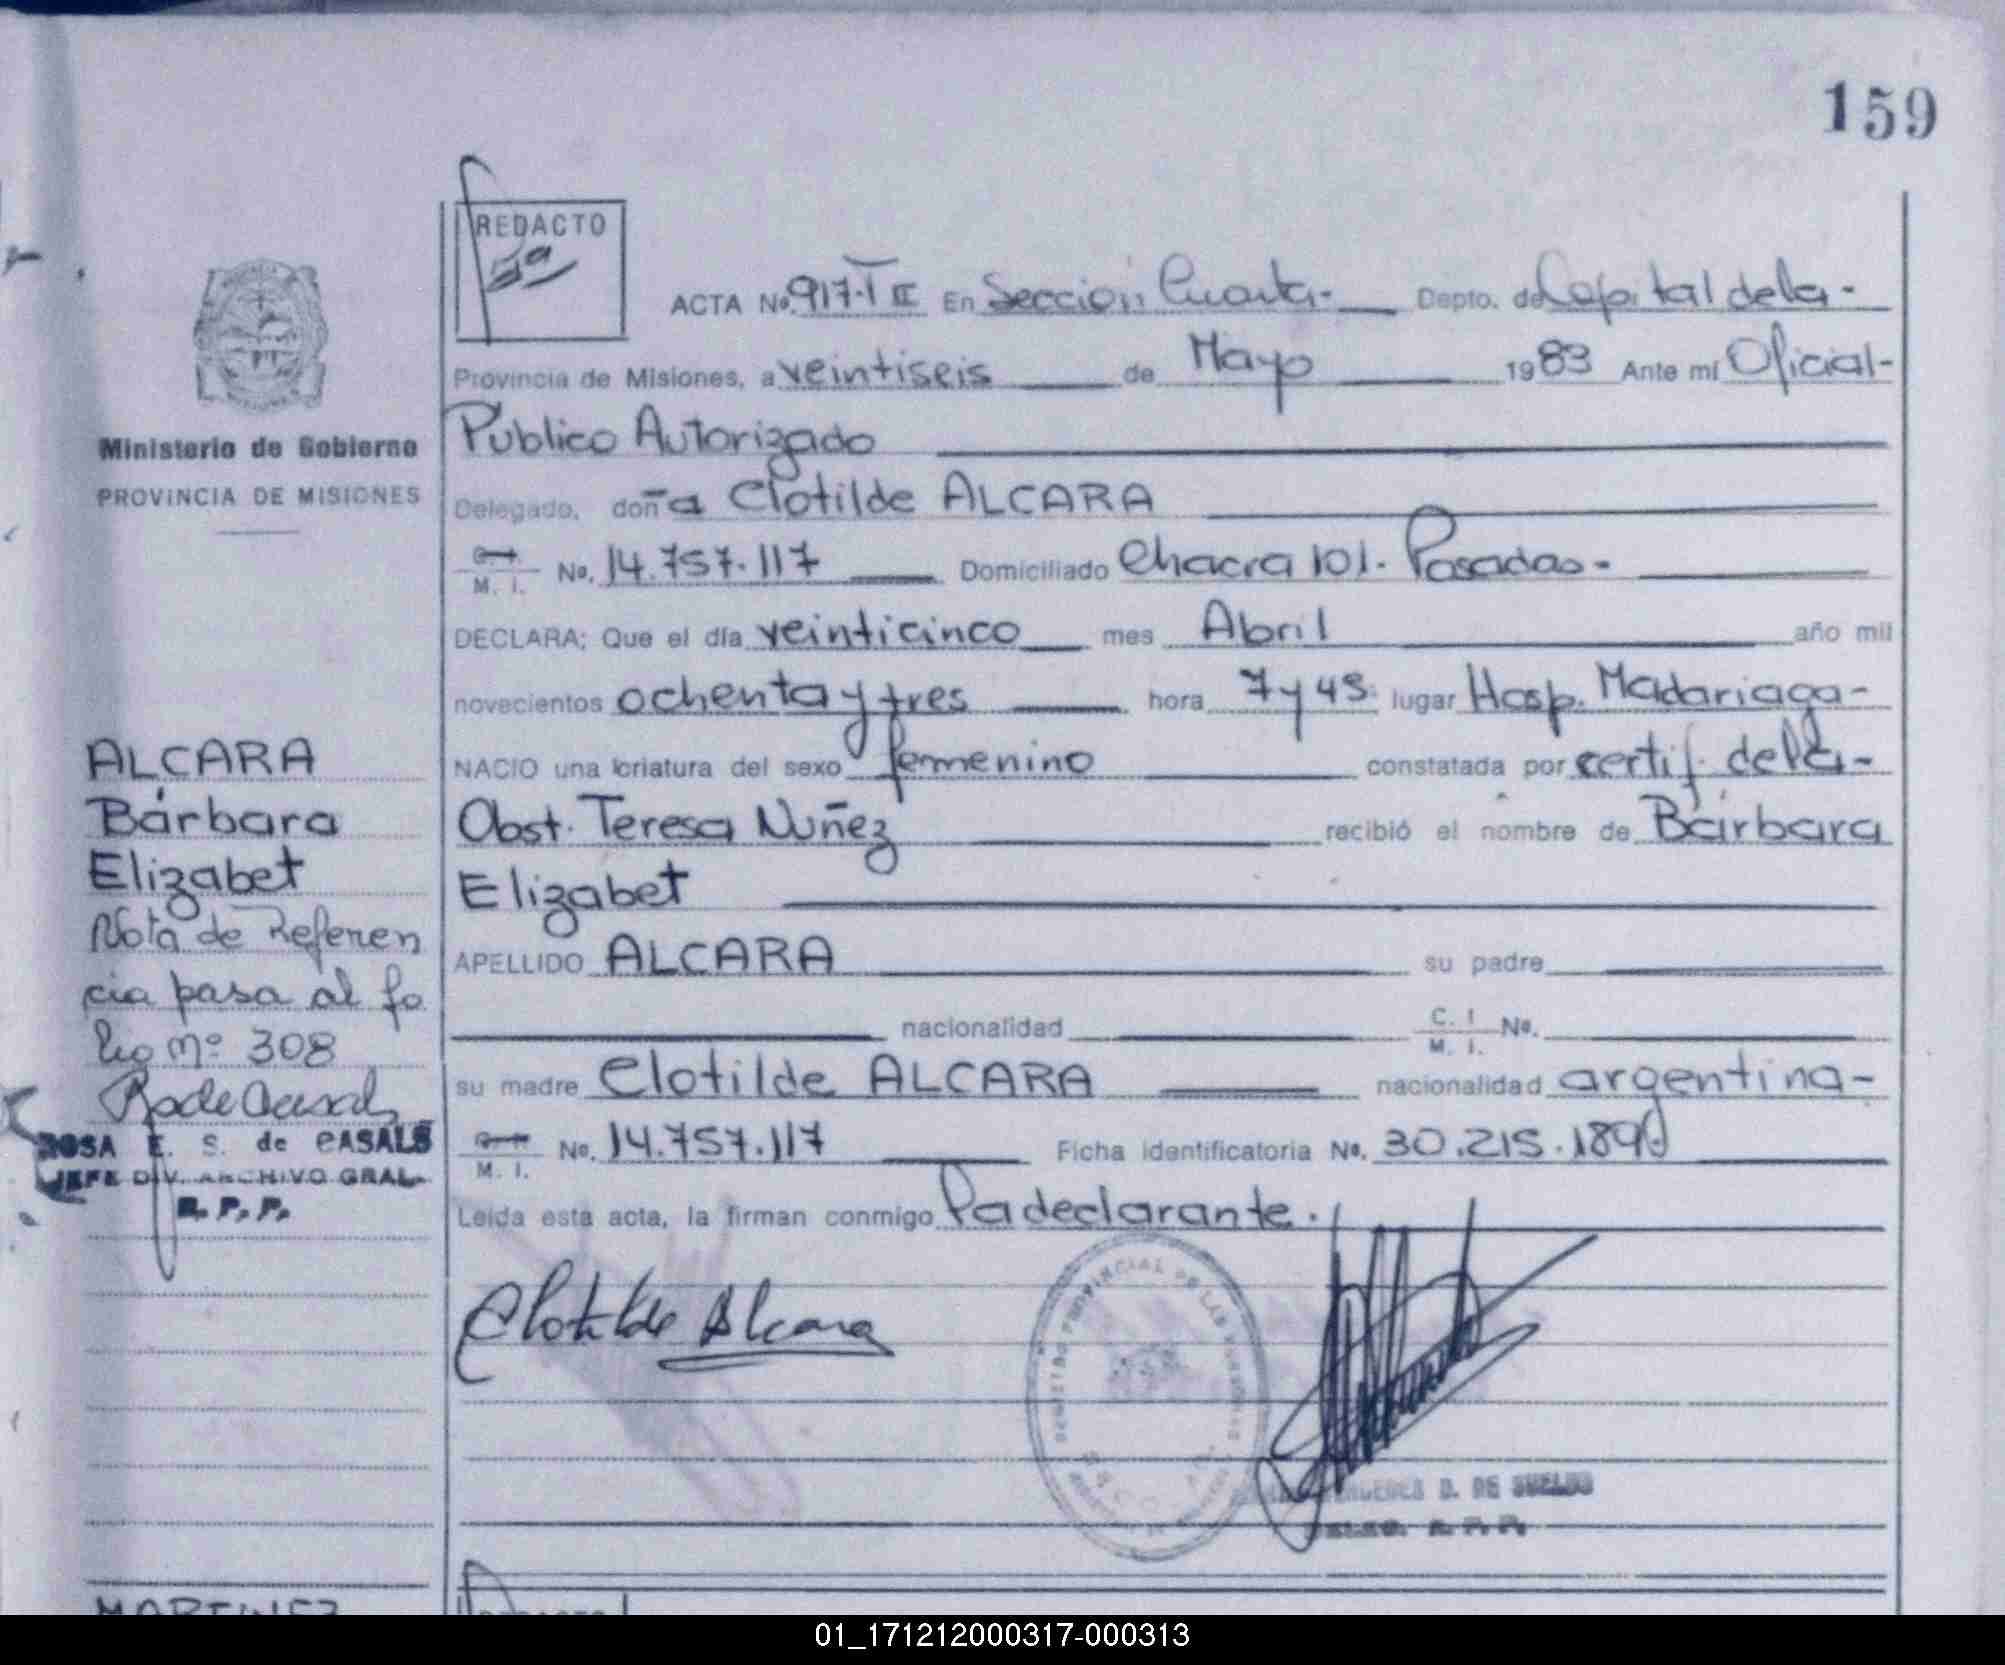 159
REDACTO
ACTA No. 917. T II En Sección Cuarta.- Depto. de Capital de la-
Provincia de Misiones, a veintiseis de Mayo 1983 Ante mí Oficial-
Público Autorizado
Delegado, doña Clotilde ALCARA
C. I. M. I. No. 14.757.117 Domiciliado Chacra 101. Posadas.-
DECLARA; Que el día veinticinco mes Abril año mil
novecientos ochenta y tres hora 7 y 45 lugar Hosp. Madariaga-
NACIO una criatura del sexo femenino constatada por certif. de la-
Obst. Teresa Nuñez recibió el nombre de Bárbara
Elizabet
APELLIDO ALCARA su padre
nacionalidad C. I. M. I. No.
su madre Clotilde ALCARA nacionalidad argentina-
M. I. No. 14.757.117 Ficha identificatoria No. 30.215.189
Leida esta acta, la firman conmigo la declarante.
Clotilde Alcara
DE SUELDO
Ministerio de Gobierno
PROVINCIA DE MISIONES
ALCARA
Bárbara
Elizabet
Nota de Referen
cia pasa al fo
lio Nº 308
ROSA E. S. de CASALS
JEFE DIV. ARCHIVO GRAL.
R. P. P.
MARTINEZ
01_171212000317-000313